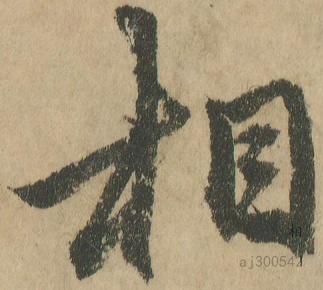 相
aj300542